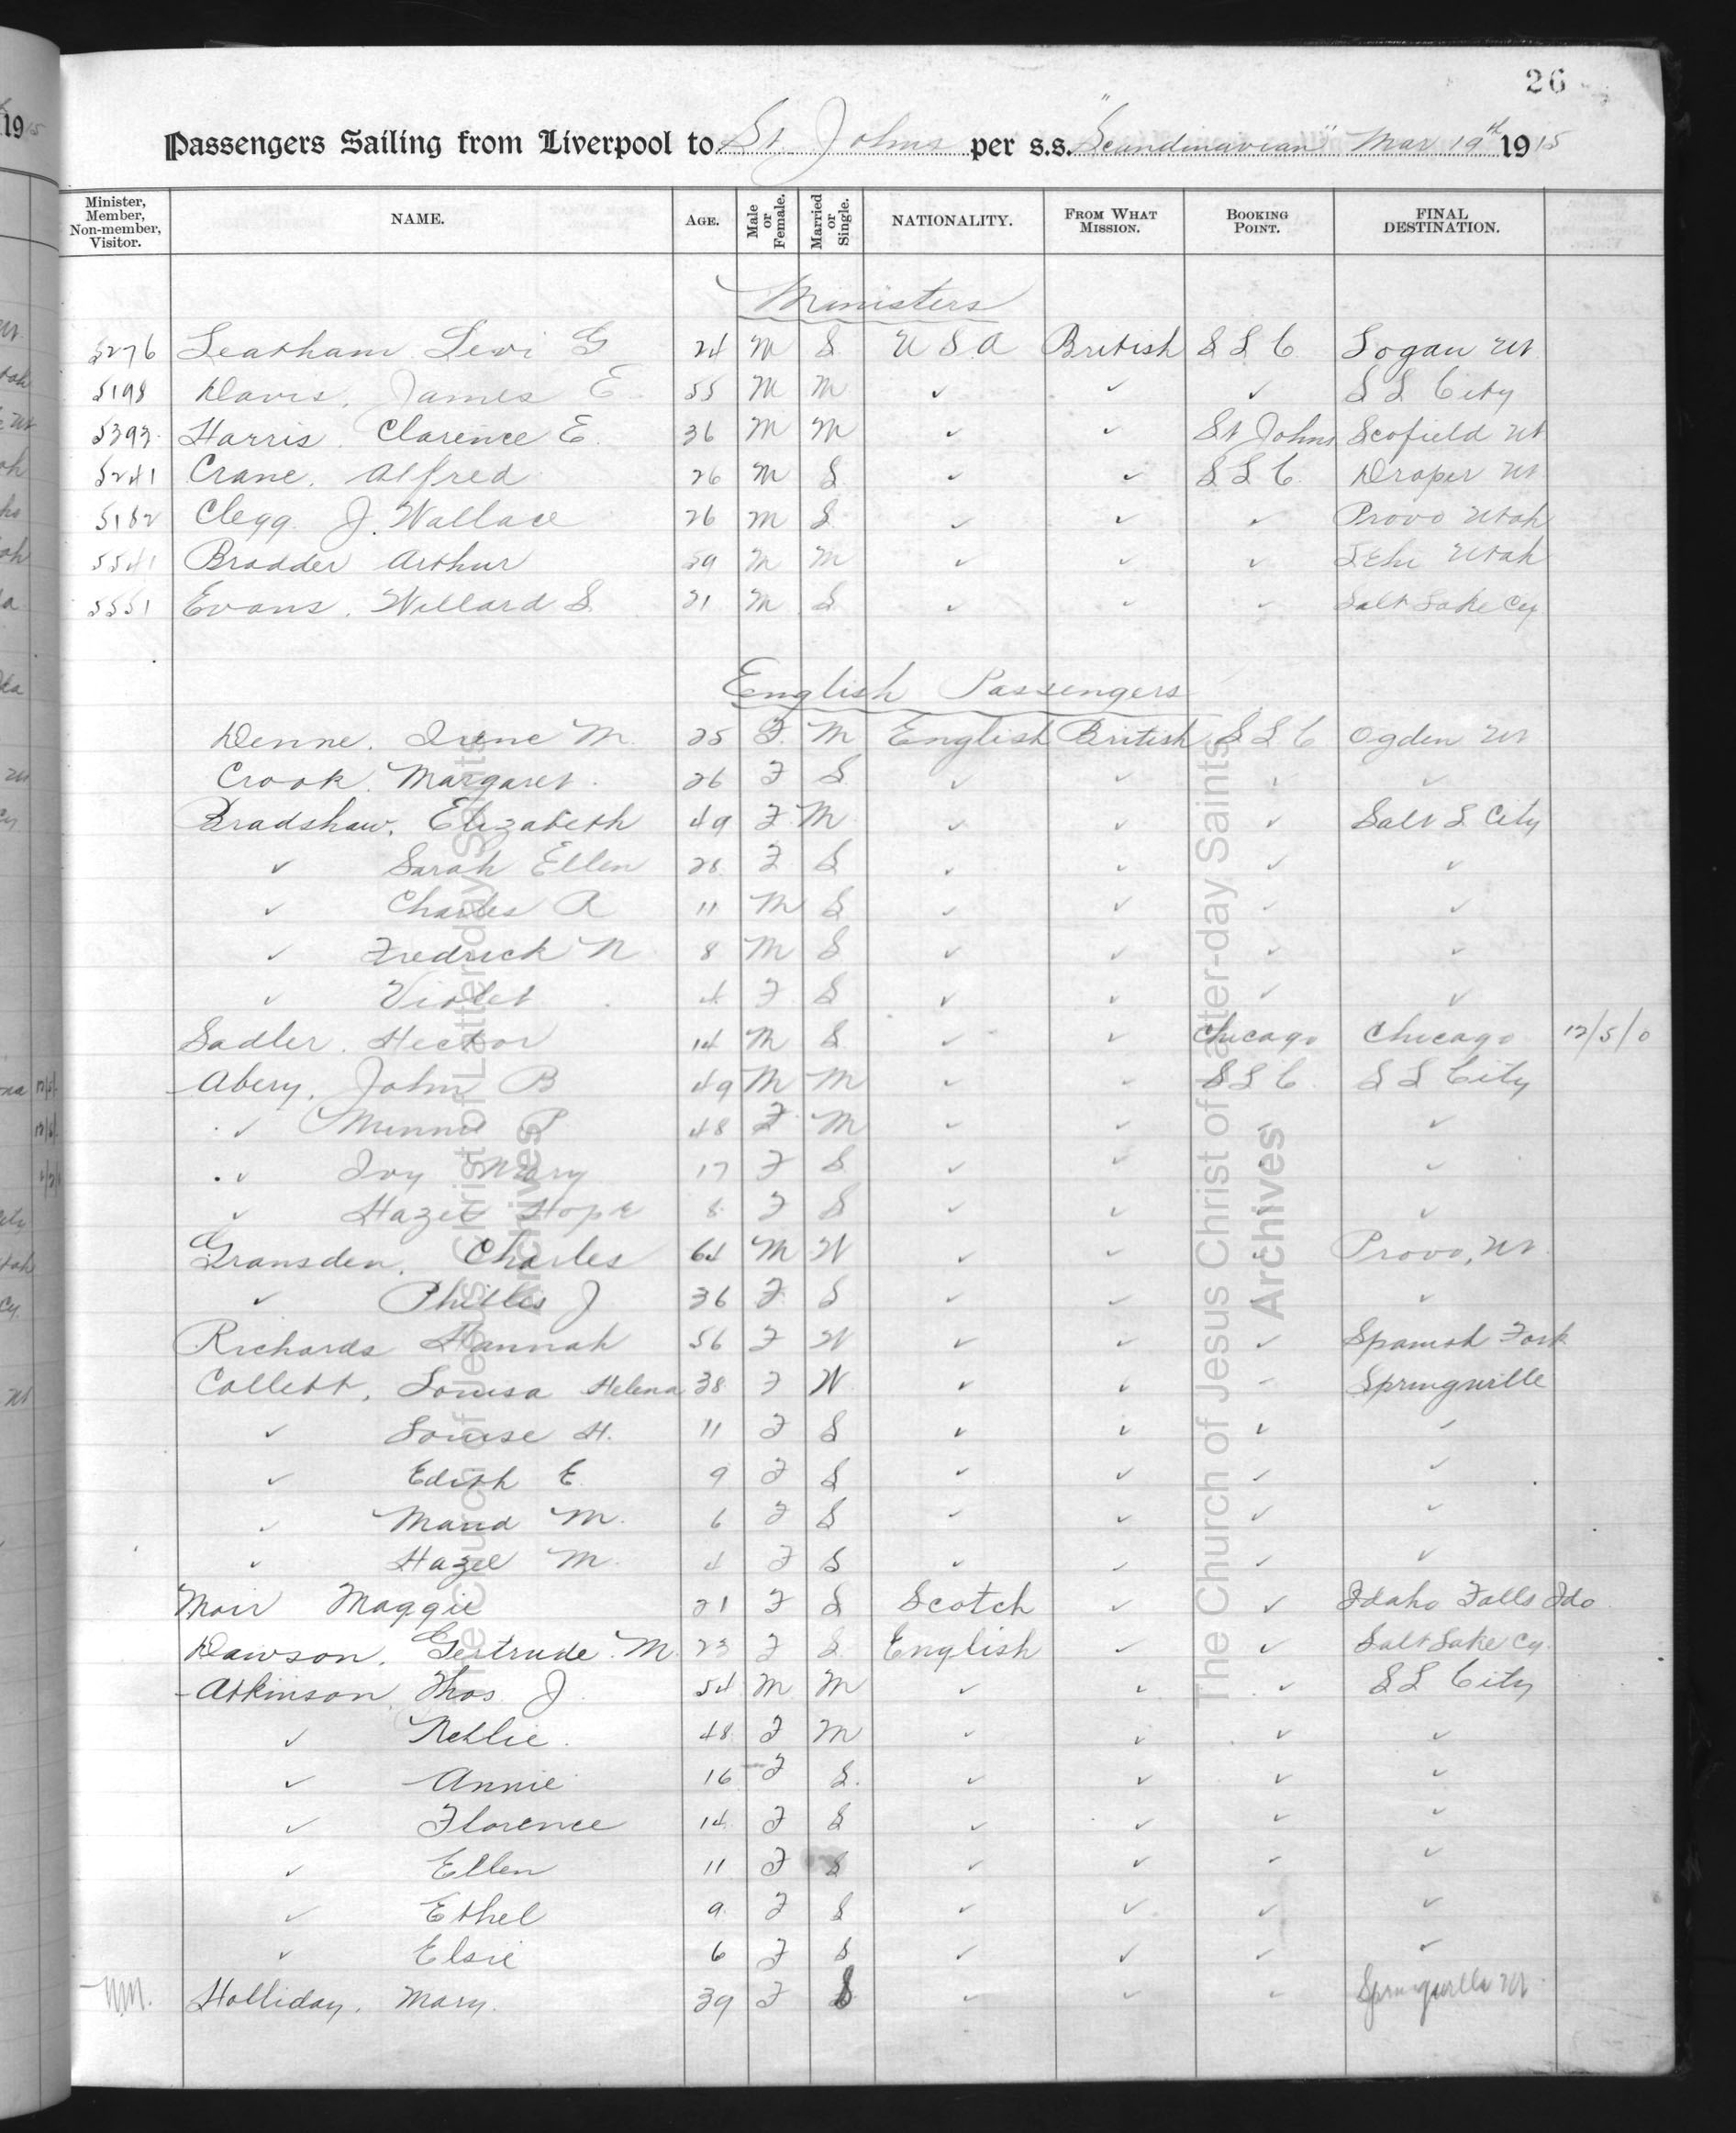 26
Passengers Sailing from Liverpool to St Johns per s.s. "Scandinavian" Mar 19th 1915
Minister, Member, Non-member, Visitor. NAME. AGE. Male or Female. Married or Single. NATIONALITY. FROM WHAT MISSION. BOOKING POINT. FINAL DESTINATION.
Ministers
5276 Leatham Levi G 24 M S U S A British S L C Logan Ut
5198 Davis, James E. 55 M M ✓ ✓ ✓ S L City
5393 Harris, Clarence E. 36 M M ✓ ✓ St Johns Scofield Ut
5241 Crane, Alfred 26 M S ✓ ✓ S L C Draper Ut
5182 Clegg J. Wallace 26 M S ✓ ✓ ✓ Provo Utah
5541 Bradder Arthur 29 M M ✓ ✓ ✓ Lehi Utah
5551 Evans, Willard S. 21 M S ✓ ✓ ✓ Salt Lake Cy
English Passengers
Denne, Irene M. 25 F M English British S L C Ogden Ut
Crook, Margaret. 26 F S ✓ ✓ ✓ ✓
Bradshaw, Elizabeth 49 F M ✓ ✓ ✓ Salt L City
✓ Sarah Ellen 28 F S ✓ ✓ ✓ ✓
✓ Charles A 11 M S ✓ ✓ ✓ ✓
✓ Fredrick N 8 M S ✓ ✓ ✓ ✓
✓ Violet 4 F S ✓ ✓ ✓ ✓
Sadler, Hector 14 M S ✓ ✓ Chicago Chicago 12/5/0
Abery, John B 49 M M ✓ ✓ S L C S L City
✓ Minnie P 48 F M ✓ ✓ ✓ ✓
✓ Ivy Mary 17 F S ✓ ✓ ✓ ✓
✓ Hazel Hope 8 F S ✓ ✓ ✓ ✓
Gransden, Charles 64 M W ✓ ✓ ✓ Provo, Ut
✓ Phillis J 36 F S ✓ ✓ ✓ ✓
Richards Hannah 56 F W ✓ ✓ ✓ Spanish Fork
Collett, Louisa Helena 38 F W ✓ ✓ ✓ Springville
✓ Louise H. 11 F S ✓ ✓ ✓ ✓
✓ Edith E 9 F S ✓ ✓ ✓ ✓
✓ Maud M. 6 F S ✓ ✓ ✓ ✓
✓ Hazel M. 4 F S ✓ ✓ ✓ ✓
Moir Maggie 21 F S Scotch ✓ ✓ Idaho Falls Ido
Dawson, Gertrude M. 23 F S English ✓ ✓ Salt Lake Cy.
Atkinson, Thos J 54 M M ✓ ✓ ✓ S L City
✓ Nellie. 48 F M ✓ ✓ ✓ ✓
✓ Annie 16 F S. ✓ ✓ ✓ ✓
✓ Florence 14 F S ✓ ✓ ✓ ✓
✓ Ellen 11 F S ✓ ✓ ✓ ✓
✓ Ethel 9 F S ✓ ✓ ✓ ✓
✓ Elsie 6 F S ✓ ✓ ✓ ✓
N.M. Holliday, Mary. 39 F S ✓ ✓ ✓ Springville Ut
The Church of Jesus Christ of Latter-day Saints
Archives
The Church of Jesus Christ of Latter-day Saints
Archives